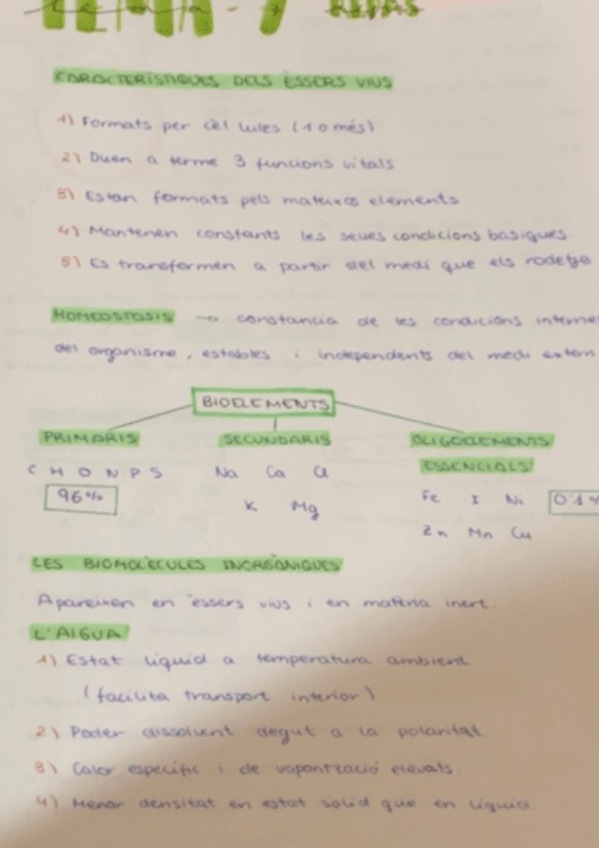 TEMA - 7 → REPÀS
CARACTERÍSTIQUES DELS ÈSSERS VIUS
1) Formats per cèl·lules (1 o més)
2) Duen a terme 3 funcions vitals
3) Estan formats pels mateixos elements
4) Mantenen constants les seues condicions basiques
5) Es transformen a partir del medi que els rodetja
HOMEOSTOSIS → constancia de les condicions internes
del organisme, estables i independents del medi extern
BIOELEMENTS
PRIMARIS SECUNDARIS OLIGOELEMENTS
ESSENCIALS
C H O N P S Na Ca Cl
96% K Mg Fe I Ni 0'1%
Zn Mn Cu
LES BIOMOLÈCULES INORGÀNIQUES
Apareixen en èssers vius i en matèria inert.
L'AIGUA
1) Estat líquid a temperatura ambient.
(facilita transport interior)
2) Poder dissolvent degut a la polaritat.
3) Calor específic i de vaporització elevats.
4) Menor densitat en estat sòlid que en líquid